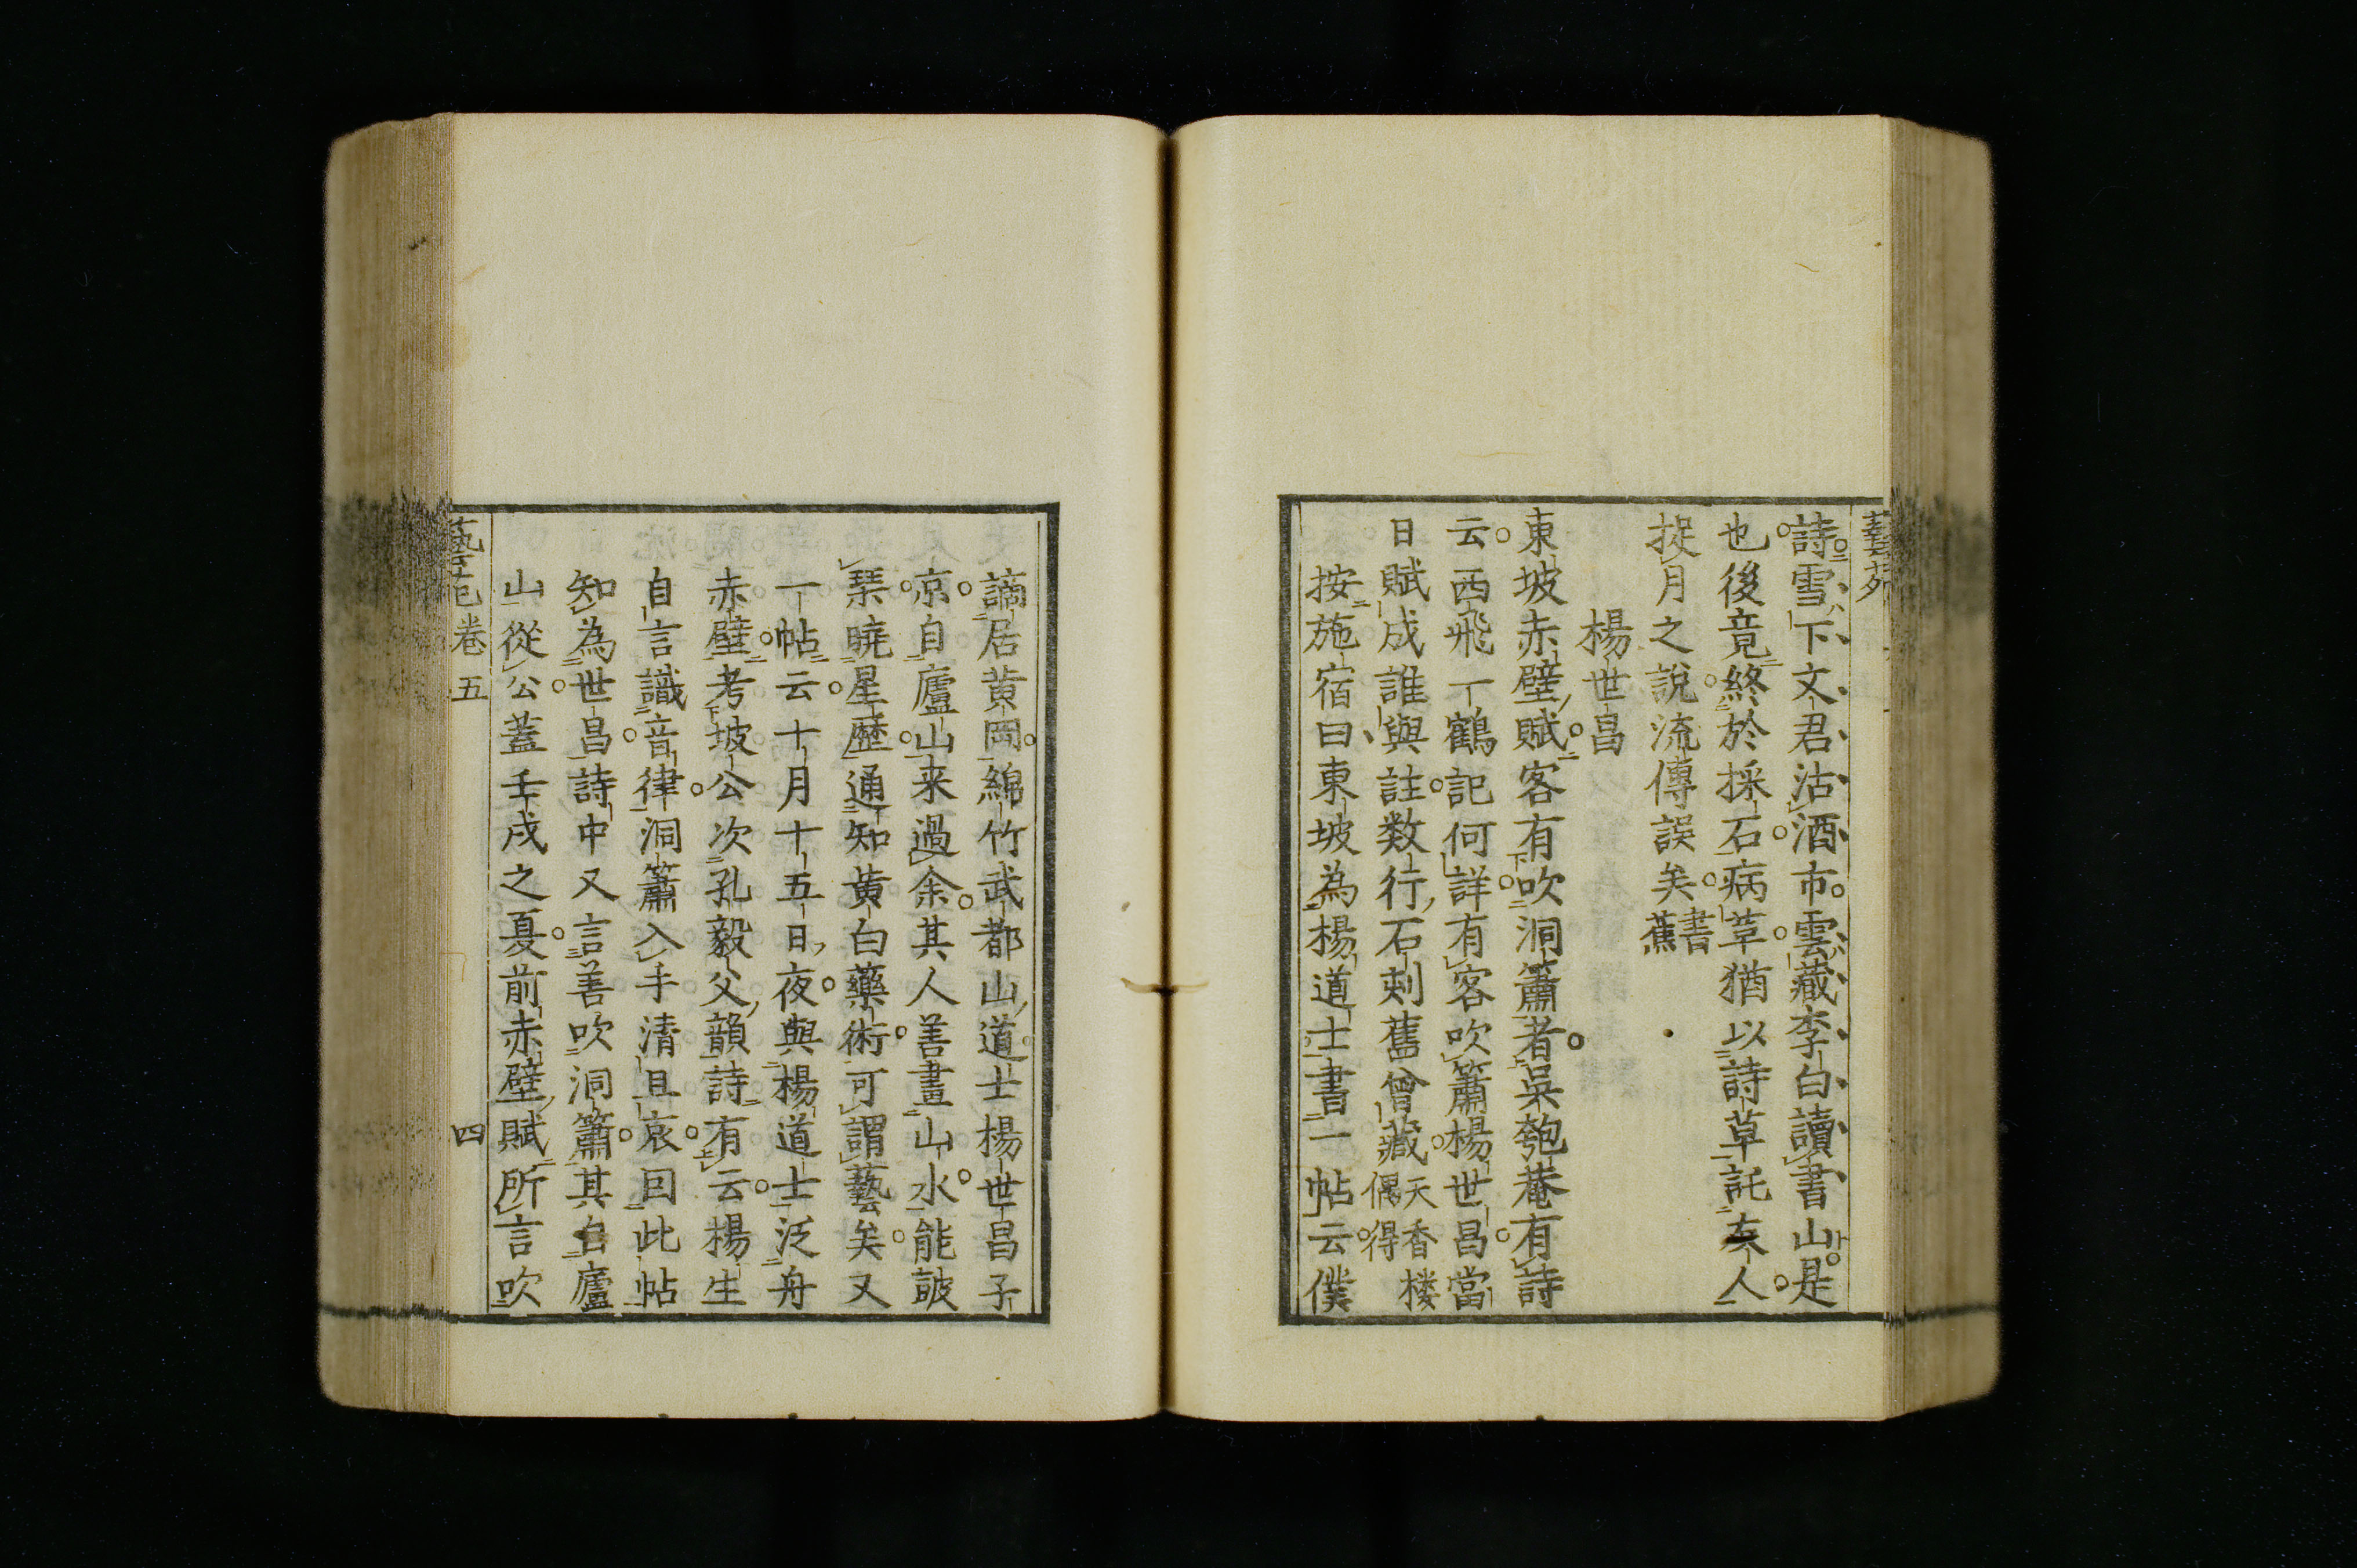 藝苑
詩雪下文君沽酒市雲藏李白讀書山是
也後竟終於採石病草猶以詩草託友人
捉月之說流傳誤矣蕉書
楊世昌
東坡赤壁賦客有吹洞簫者吳匏菴有詩
云西飛一鶴記何詳有客吹簫楊世昌當
日賦成誰與註数行石刻舊曾藏天香楼偶得
按施宿曰東坡為楊道士書一帖云僕
謫居黃岡綿竹武都山道士楊世昌子
京自廬山来過余其人善畫山水能鼓
琹曉星歷通知黃白藥術可謂藝矣又
一帖云十月十五日夜與楊道士泛舟
赤壁考坡公次孔毅父韻詩有云楊生
自言識音律洞簫入手清且哀回此帖
知為世昌詩中又言善吹洞簫其自廬
山從公蓋壬戌之夏前赤壁賦所言吹
藝苑卷五 四